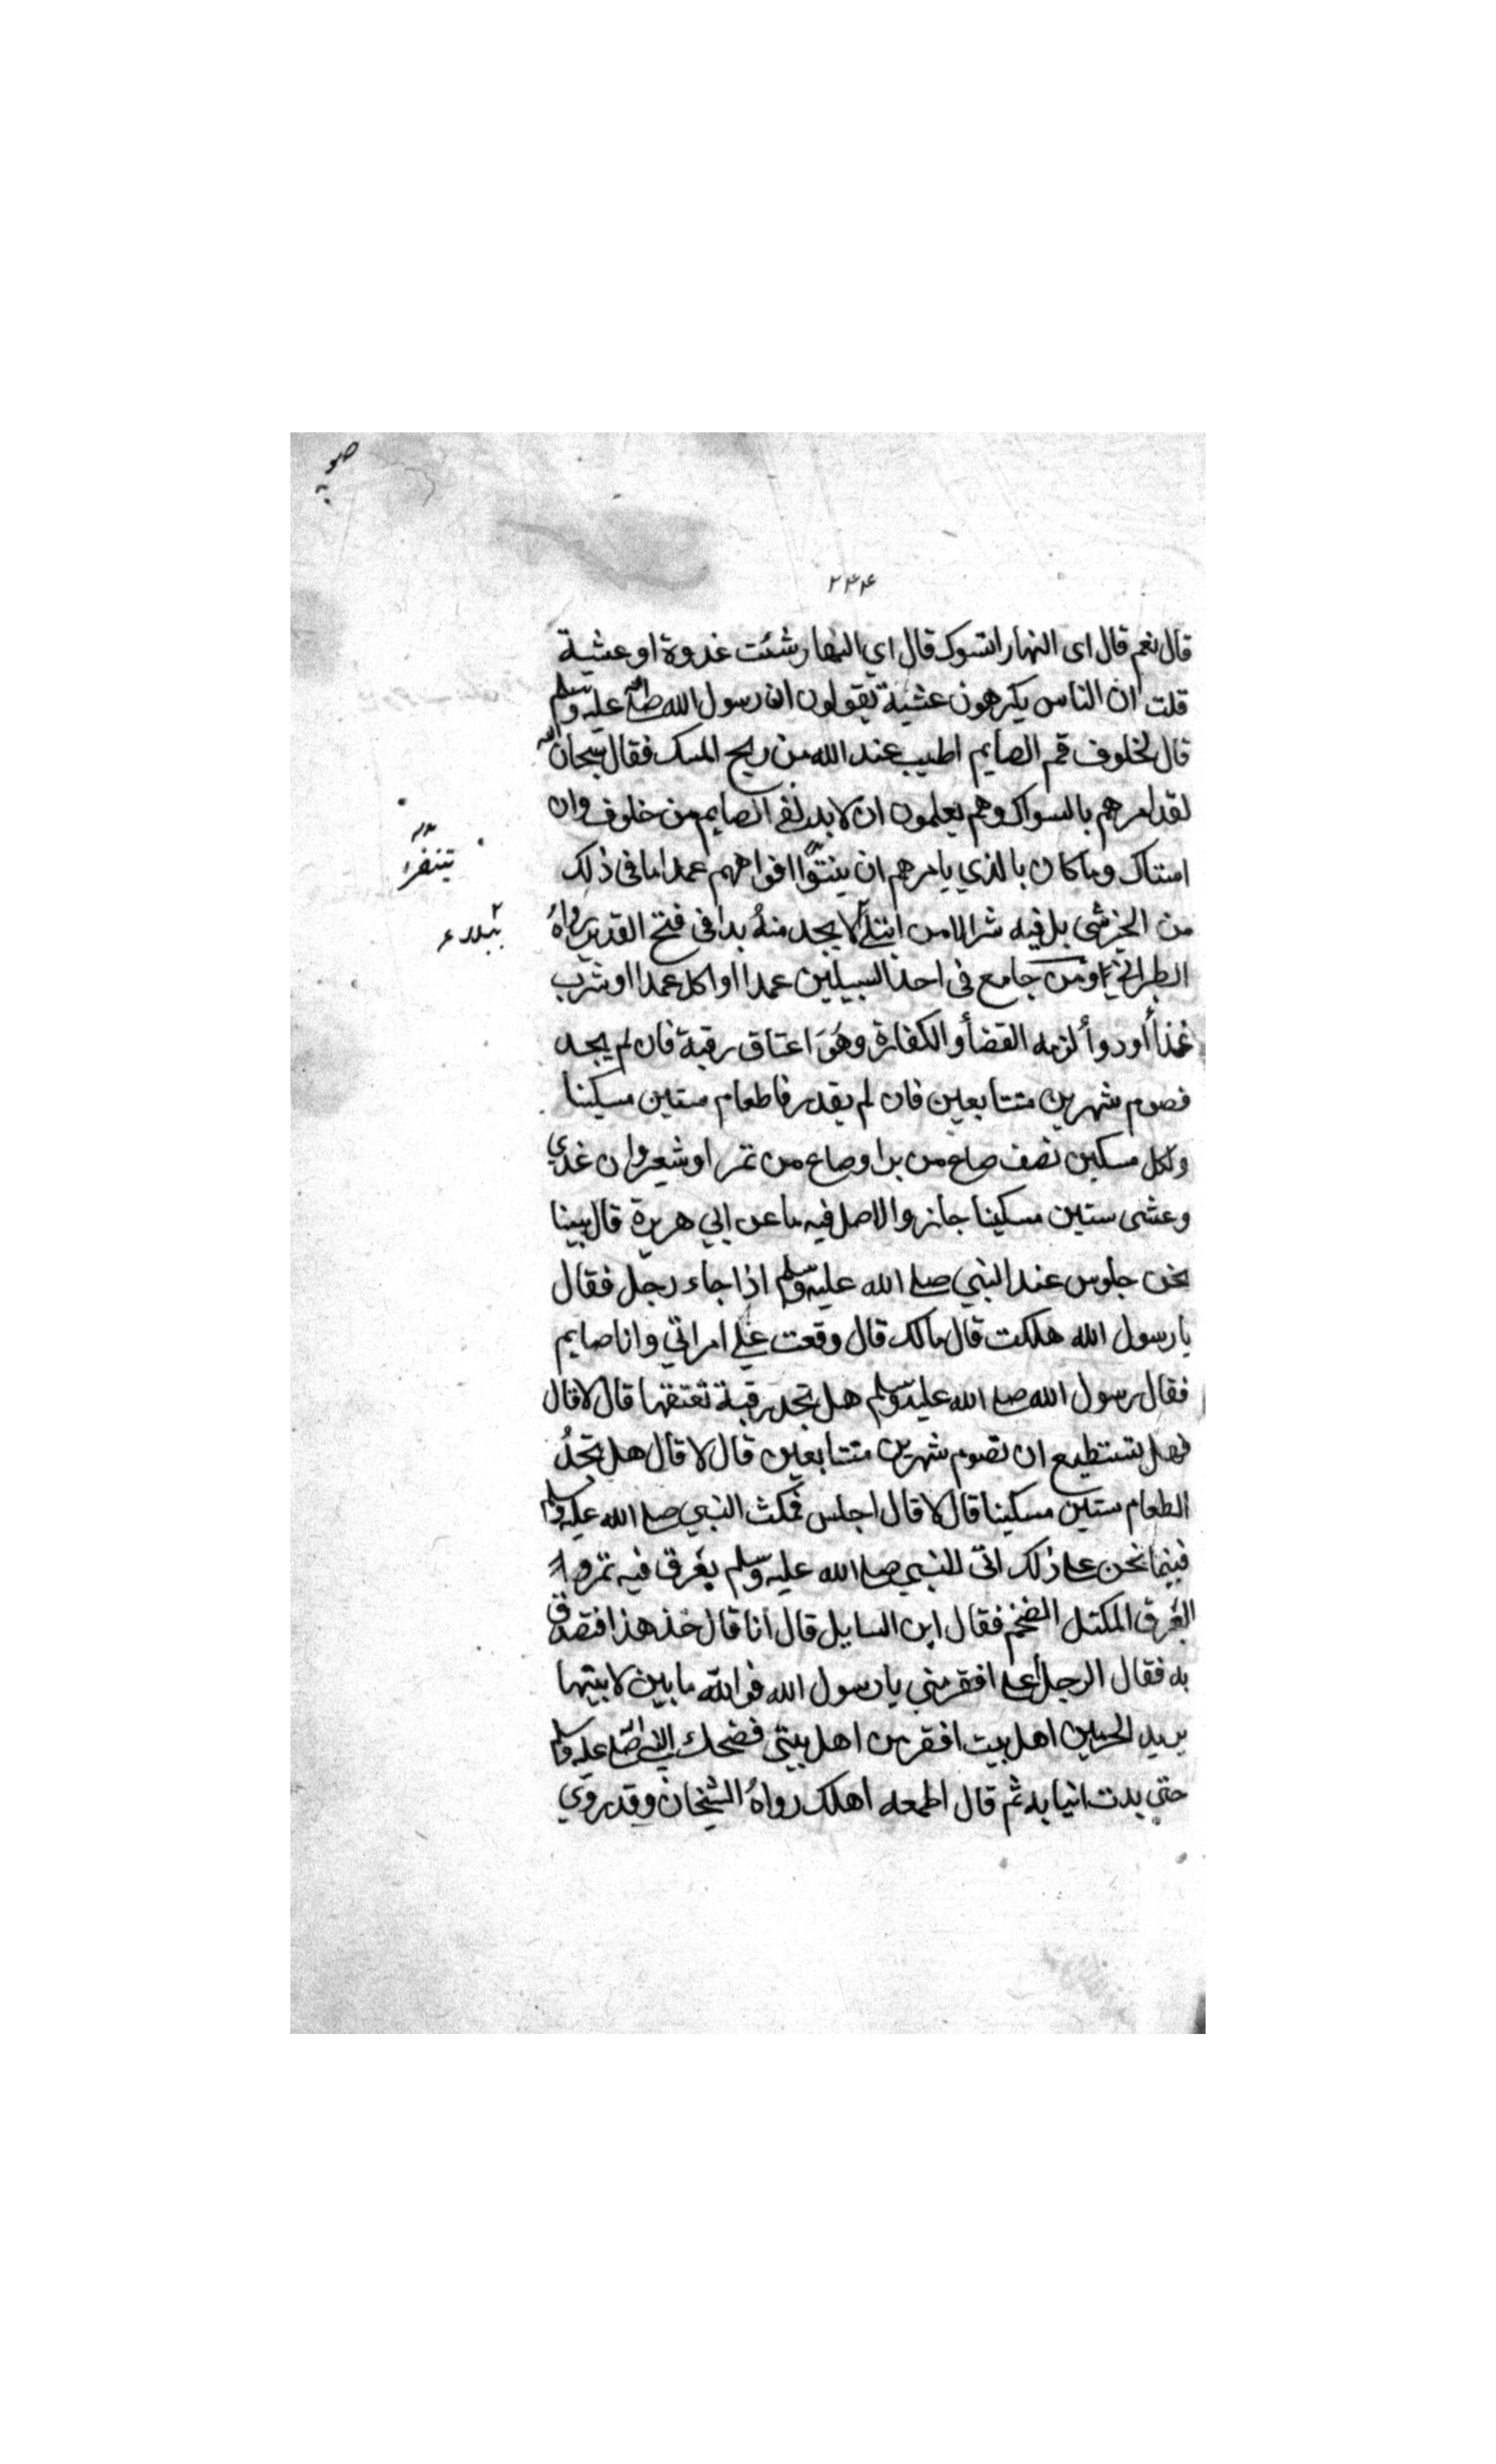 صو
٢٤٤
قال نعم قال اى النهار اتسوك قال اي النهار شئت غدوة او عشية
قلت ان الناس يكرهون عشية يقولون ان رسول الله صلى الله عليه وسلم
قال لخلوف فم الصايم اطيب عند الله من ريح المسك فقال سبحان الله
لقد امرهم بالسواك وهم يعلمون ان لا بد لفم الصايم من خلوف وان
استاك وما كان بالذي يامرهم ان ينتنوا افواههم عمدا ما فى ذلك
من الخير شى بل فيه شر الا من ابتلى لا يجد منهُ بدا فى فتح القدير رواهُ
الطبراني ومن جامع فى احد السبيلين عمدا او اكل عمدا او شرب
غذاً او دوأ لزمه القضأ و الكفارة وهُوَ اعتاق رقبة فان لم يجد
فصوم شهرين متتابعين فان لم يقدر فاطعام ستين مسكينا
ولكل مسكين نصف صاع من بر او صاع من تمر او شعير وان غدي
وعشى ستين مسكينا جاز والاصل فيه ما عن ابي هريرة قال بينا
نحن جلوس عند النبي صلى الله عليه وسلم اذا جاء رجل فقال
يا رسول الله هلكت قال مالك قال وقعت علي امراتي وانا صايم
فقال رسول الله صلى الله عليه وسلم هل تجد رقبة تعتقها قال لا قال
فهل تستطيع ان تصوم شهرين متتابعين قال لا قال هل تجدُ
الطعام ستين مسكينا قال لا قال اجلس فمكث النبي صلى الله عليه وسلم
فبينما نحن على ذلك اتى للنبي صلى الله عليه وسلم بعرق فيه تمر
العرق المكتل الضخم فقال اين السايل قال انا قال خذ هذا فتصدق
به فقال الرجل أعلى افقر مني يا رسول الله فوالله ما بين لابتيها
يريد الحرتين اهل بيت افقر من اهل بيتي فضحك النبي صلى الله عليه وسلم
حتي بدت انيابه ثم قال اطعمه اهلك رواهُ الشيخان وقد روي